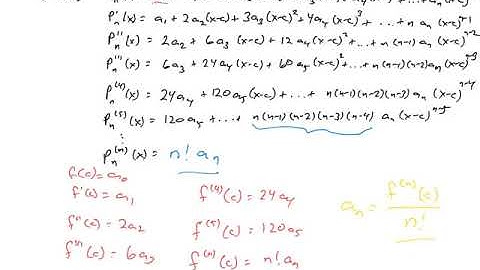 P_n'(x) = a_1 + 2a_2(x-c) + 3a_3(x-c)^2 + 4a_4(x-c)^3 + ... + n a_n (x-c)^{n-1}
P_n''(x) = 2a_2 + 6a_3 (x-c) + 12a_4 (x-c)^2 + ... + n(n-1) a_n (x-c)^{n-2}
P_n'''(x) = 6a_3 + 24a_4 (x-c) + 60a_5 (x-c)^2 + ... + n(n-1)(n-2) a_n (x-c)^{n-3}
P_n^{(4)}(x) = 24a_4 + 120a_5 (x-c) + ... + n(n-1)(n-2)(n-3) a_n (x-c)^{n-4}
P_n^{(5)}(x) = 120a_5 + ... + n(n-1)(n-2)(n-3)(n-4) a_n (x-c)^{n-5}
⋮
P_n^{(n)}(x) = n! a_n
f(c) = a_0
f'(c) = a_1
f''(c) = 2a_2
f'''(c) = 6a_3
f^{(4)}(c) = 24a_4
f^{(5)}(c) = 120a_5
f^{(n)}(c) = n! a_n
a_n = f^{(n)}(c) / n!